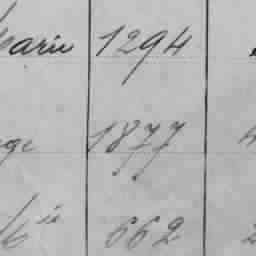 Marie 1294
ge 1877
6ie 662